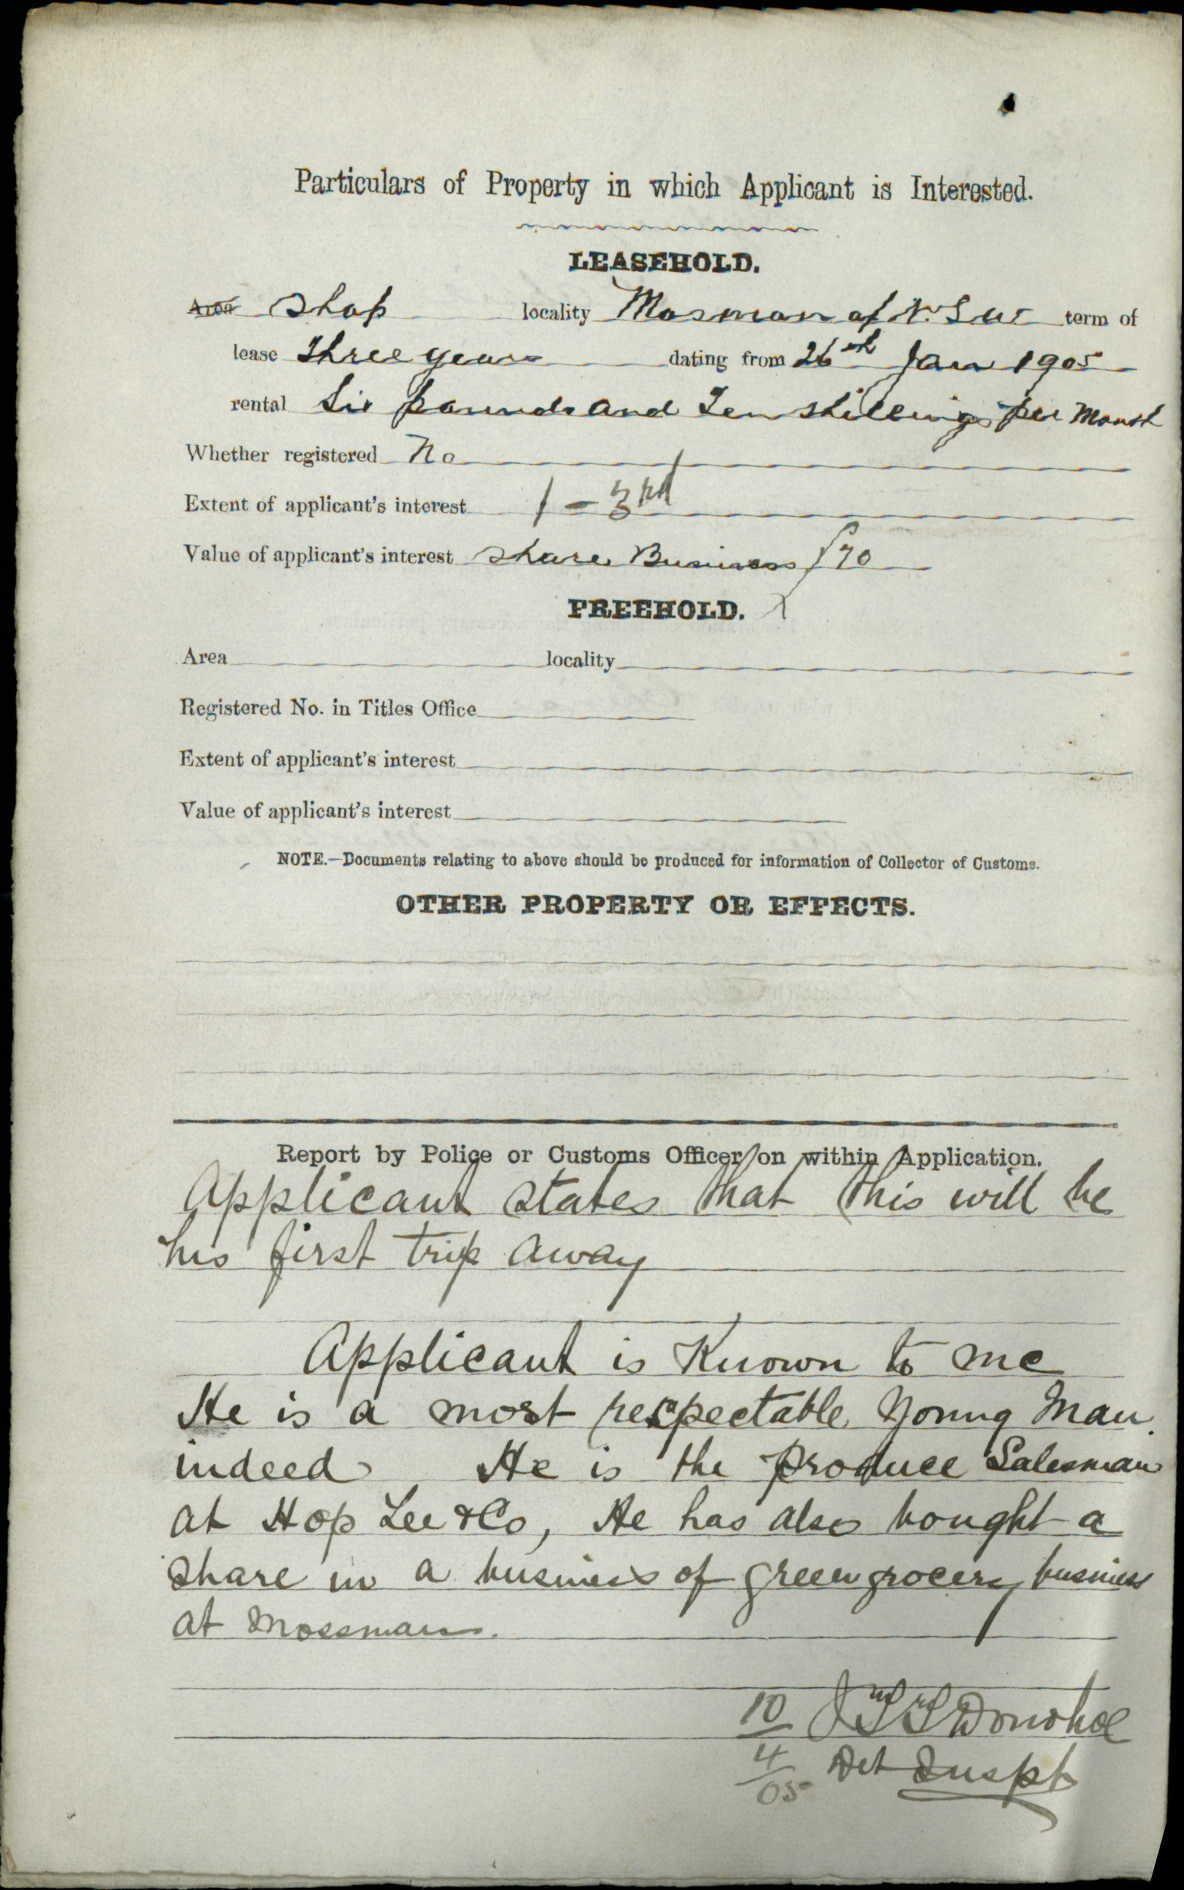 Particulars of Property in which Applicant is Interested.
LEASEHOLD.
Area Shop locality Mosman of N.S.W term of
lease Three years dating from 26th Jan 1905
rental Six pounds and Ten shillings per Month
Whether registered No
Extent of applicant's interest 1-3rd
Value of applicant's interest Share Business £70
FREEHOLD.
Area locality
Registered No. in Titles Office
Extent of applicant's interest
Value of applicant's interest
NOTE.—Documents relating to above should be produced for information of Collector of Customs.
OTHER PROPERTY OR EFFECTS.
Report by Police or Customs Officer on within Application.
Applicant states that this will be
his first trip away
Applicant is Known to me
He is a most respectable Young Man
indeed He is the produce Salesman
at Hop Lee & Co, He has also bought a
share in a business of greengrocery business
at Mossman.
10 Donohoe
4 Det Inspt
05